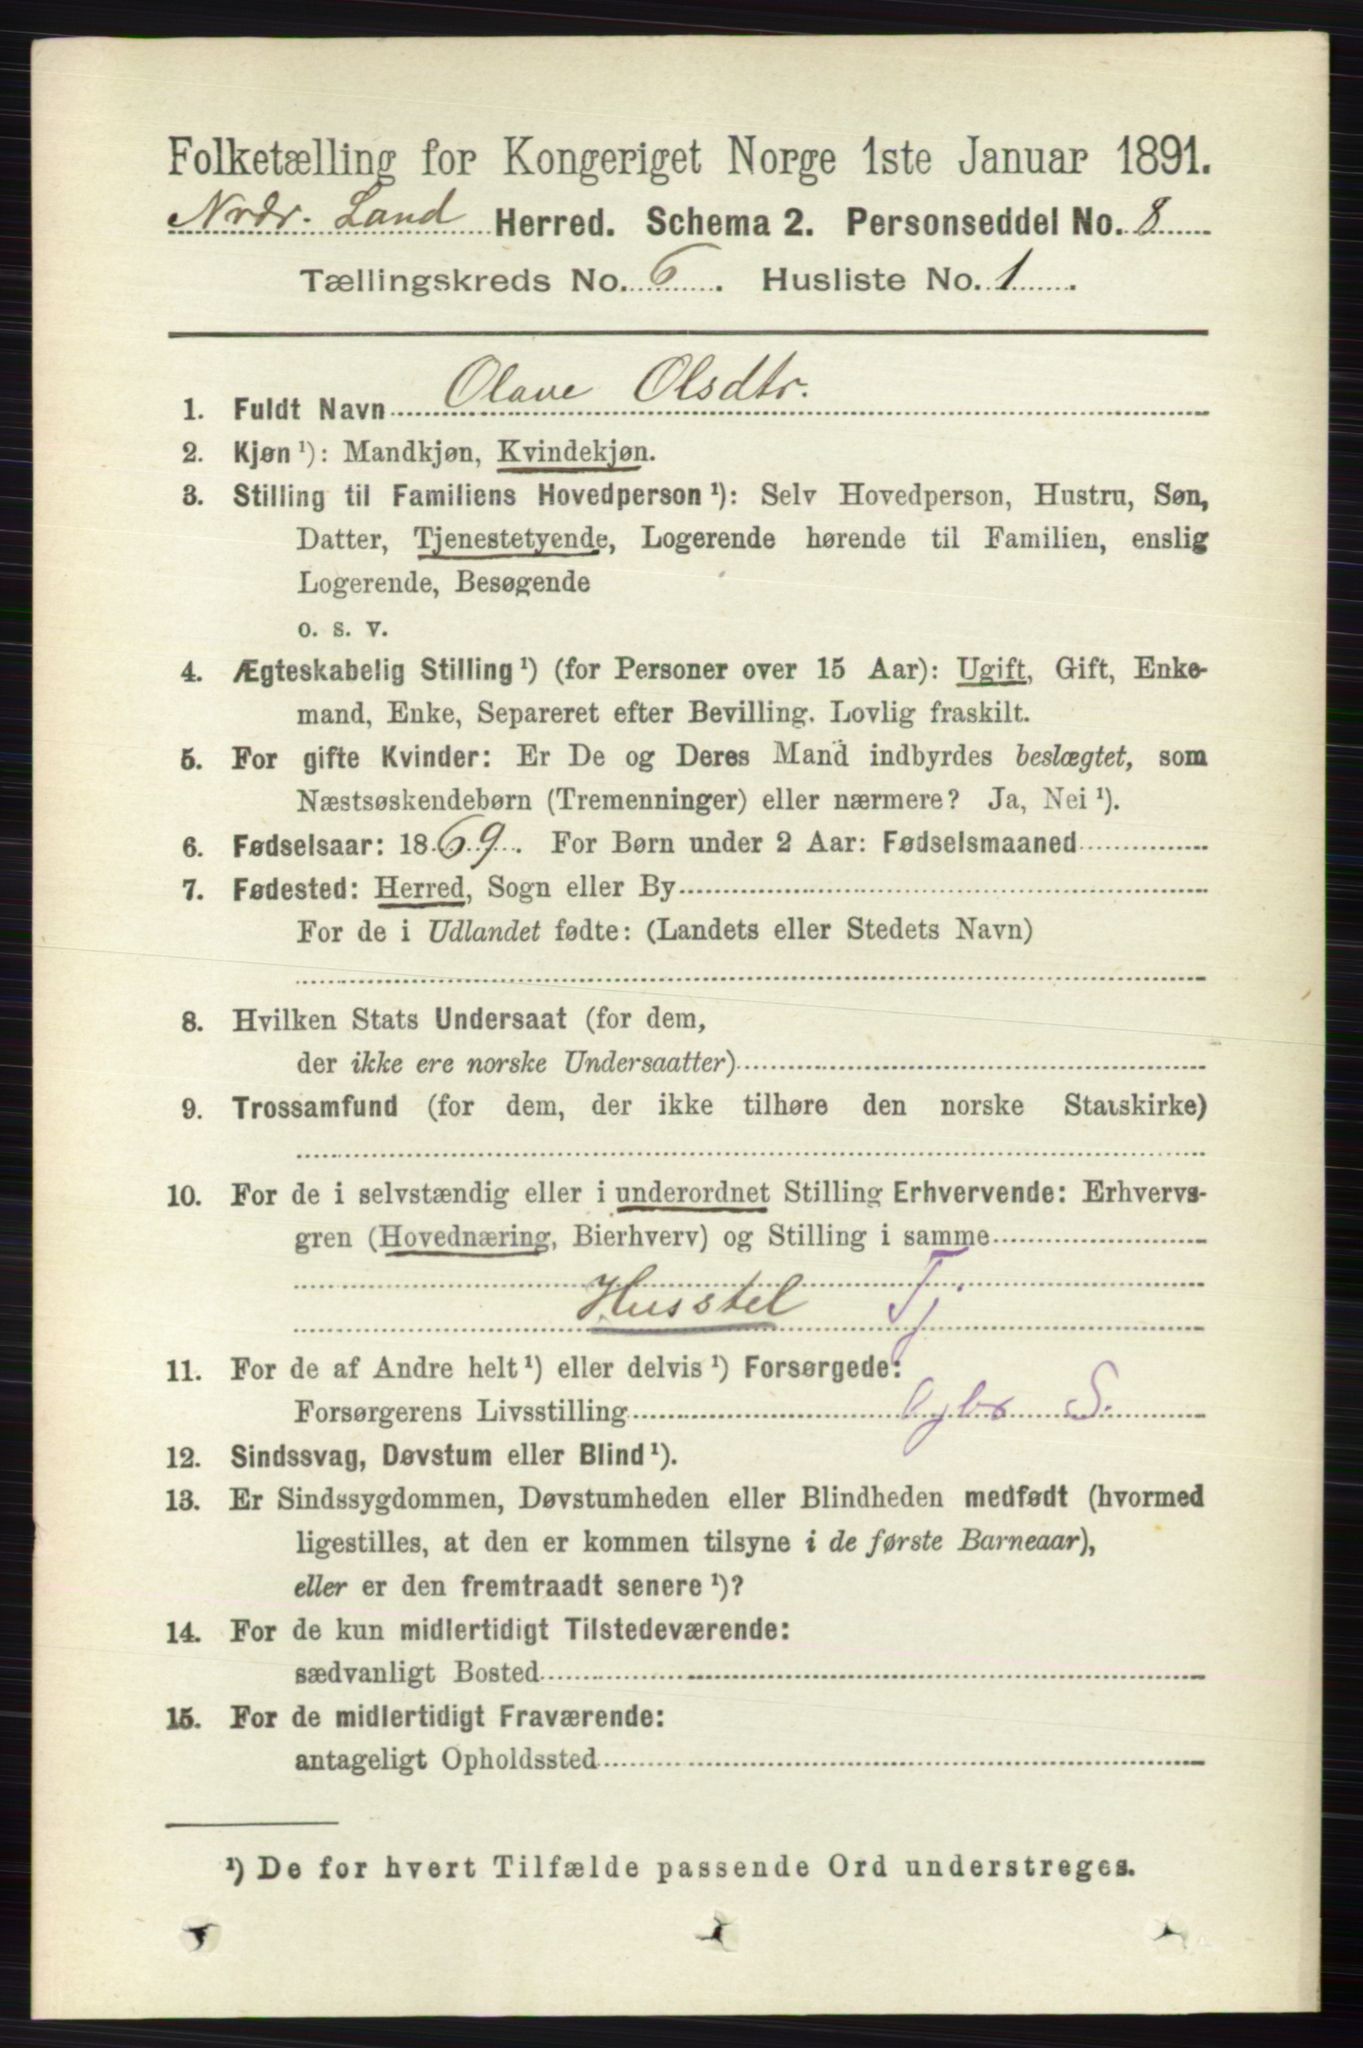 Folketælling for Kongeriget Norge 1ste Januar 1891.
Nrdr. Land Herred. Schema 2. Personseddel No. 8
Tællingskreds No. 6. Husliste No. 1.
1. Fuldt Navn Olave Olsdtr.
2. Kjøn ¹): Mandkjøn, Kvindekjøn.
3. Stilling til Familiens Hovedperson ¹): Selv Hovedperson, Hustru, Søn,
Datter, Tjenestetyende, Logerende hørende til Familien, enslig
Logerende, Besøgende
o. s. v.
4. Ægteskabelig Stilling ¹) (for Personer over 15 Aar): Ugift, Gift, Enke-
mand, Enke, Separeret efter Bevilling. Lovlig fraskilt.
5. For gifte Kvinder: Er De og Deres Mand indbyrdes beslægtet, som
Næstsøskendebørn (Tremenninger) eller nærmere? Ja, Nei ¹).
6. Fødselsaar: 1869. For Børn under 2 Aar: Fødselsmaaned
7. Fødested: Herred, Sogn eller By
For de i Udlandet fødte: (Landets eller Stedets Navn)
8. Hvilken Stats Undersaat (for dem,
der ikke ere norske Undersaatter)
9. Trossamfund (for dem, der ikke tilhøre den norske Statskirke)
10. For de i selvstændig eller i underordnet Stilling Erhvervende: Erhvervs-
gren (Hovednæring, Bierhverv) og Stilling i samme
Husstel Tj.
11. For de af Andre helt ¹) eller delvis ¹) Forsørgede:
Forsørgerens Livsstilling S.
12. Sindssvag, Døvstum eller Blind ¹).
13. Er Sindssygdommen, Døvstumheden eller Blindheden medfødt (hvormed
ligestilles, at den er kommen tilsyne i de første Barneaar),
eller er den fremtraadt senere ¹)?
14. For de kun midlertidigt Tilstedeværende:
sædvanligt Bosted
15. For de midlertidigt Fraværende:
antageligt Opholdssted
¹) De for hvert Tilfælde passende Ord understreges.